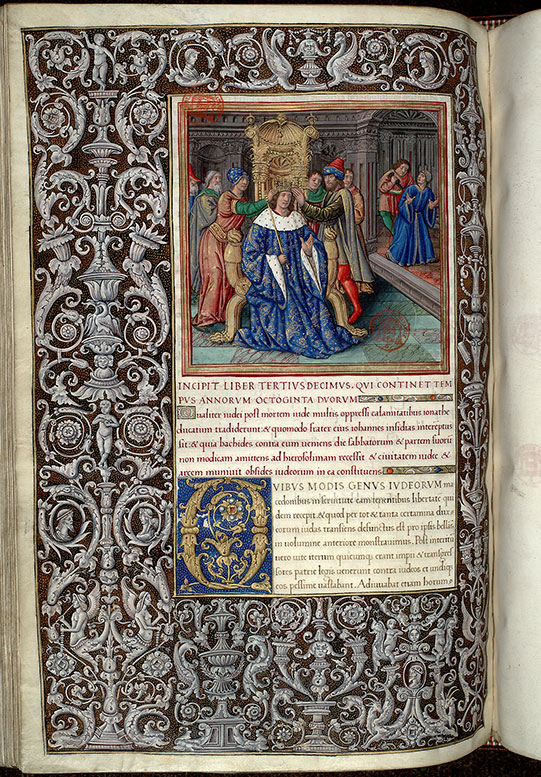 INCIPIT LIBER TERTIVSDECIMVS. QVI CONTINET TEM
PVS ANNORVM OCTOGINTA DVORVM
Qualiter iudei post mortem iude multis oppressi calamitatibus ionathe
ducatum tradiderunt & quomodo frater eius iohannes insidiis interceptus
sit & quia bachides contra eum veniens die sabbatorum & partem suorum
non modicam amittens ad hierosolimam recessit & civitatem iudee &
arcem muniuit obsides iudeorum in ea constituens
QVIBVS MODIS GENVS IVDEORVM ma
cedonibus in servitute eam tenentibus libertate qui
dem recepit & quod per tot & tanta certamina dux
eorum iudas transiens defunctus est pro ipsis bellās
in uolumine anteriore monstrauimus. Post interitū
uero iude iterum quicumq erant impii & transgres
sores patrie legis uenerunt contra iudeos et undiq
eos pessime uastabant. Adiuuabat etiam horum